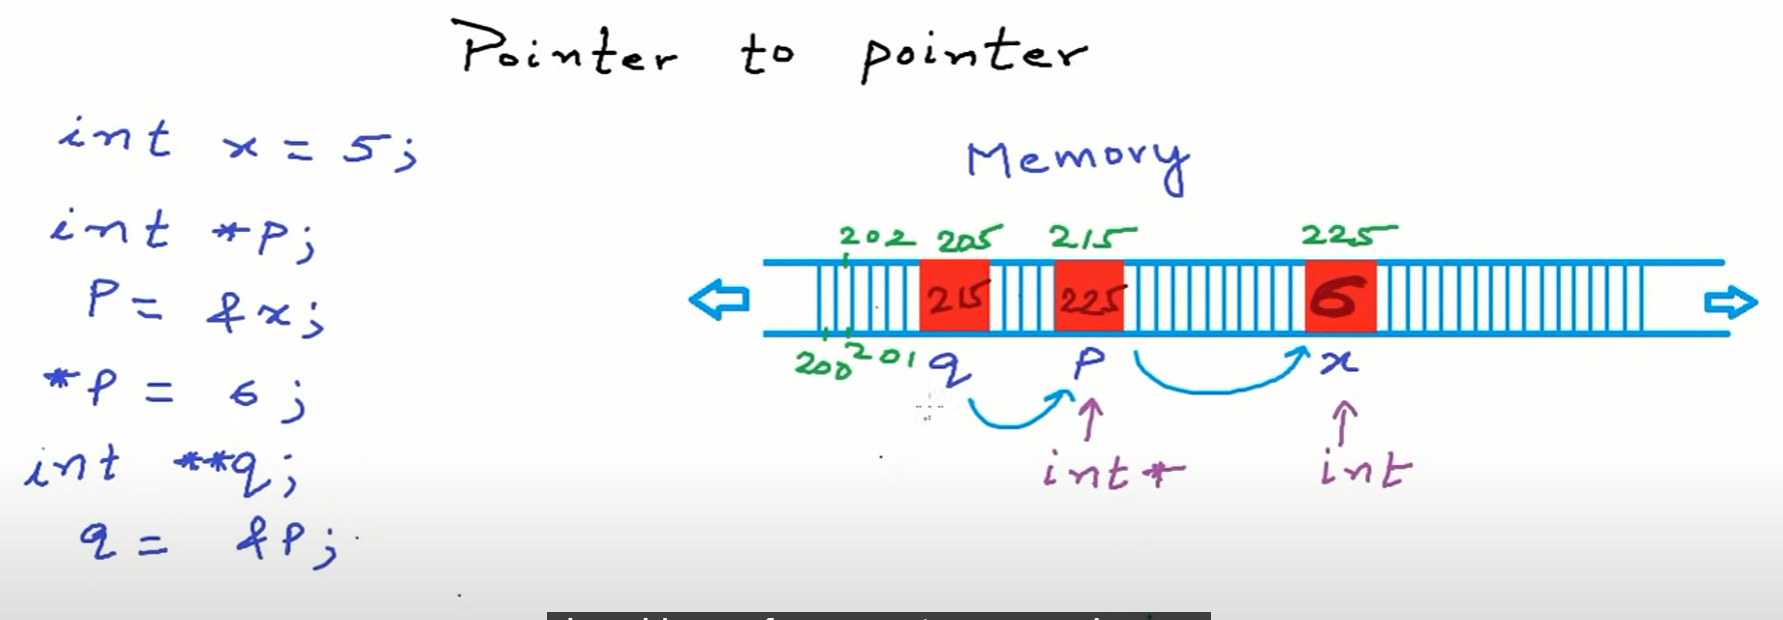 Pointer to pointer
int x = 5;
int *p;
P = &x;
*P = 6;
int **q;
q = &P;
Memory
202 205 215 225
215 225 6
200 201 q P x
int* int